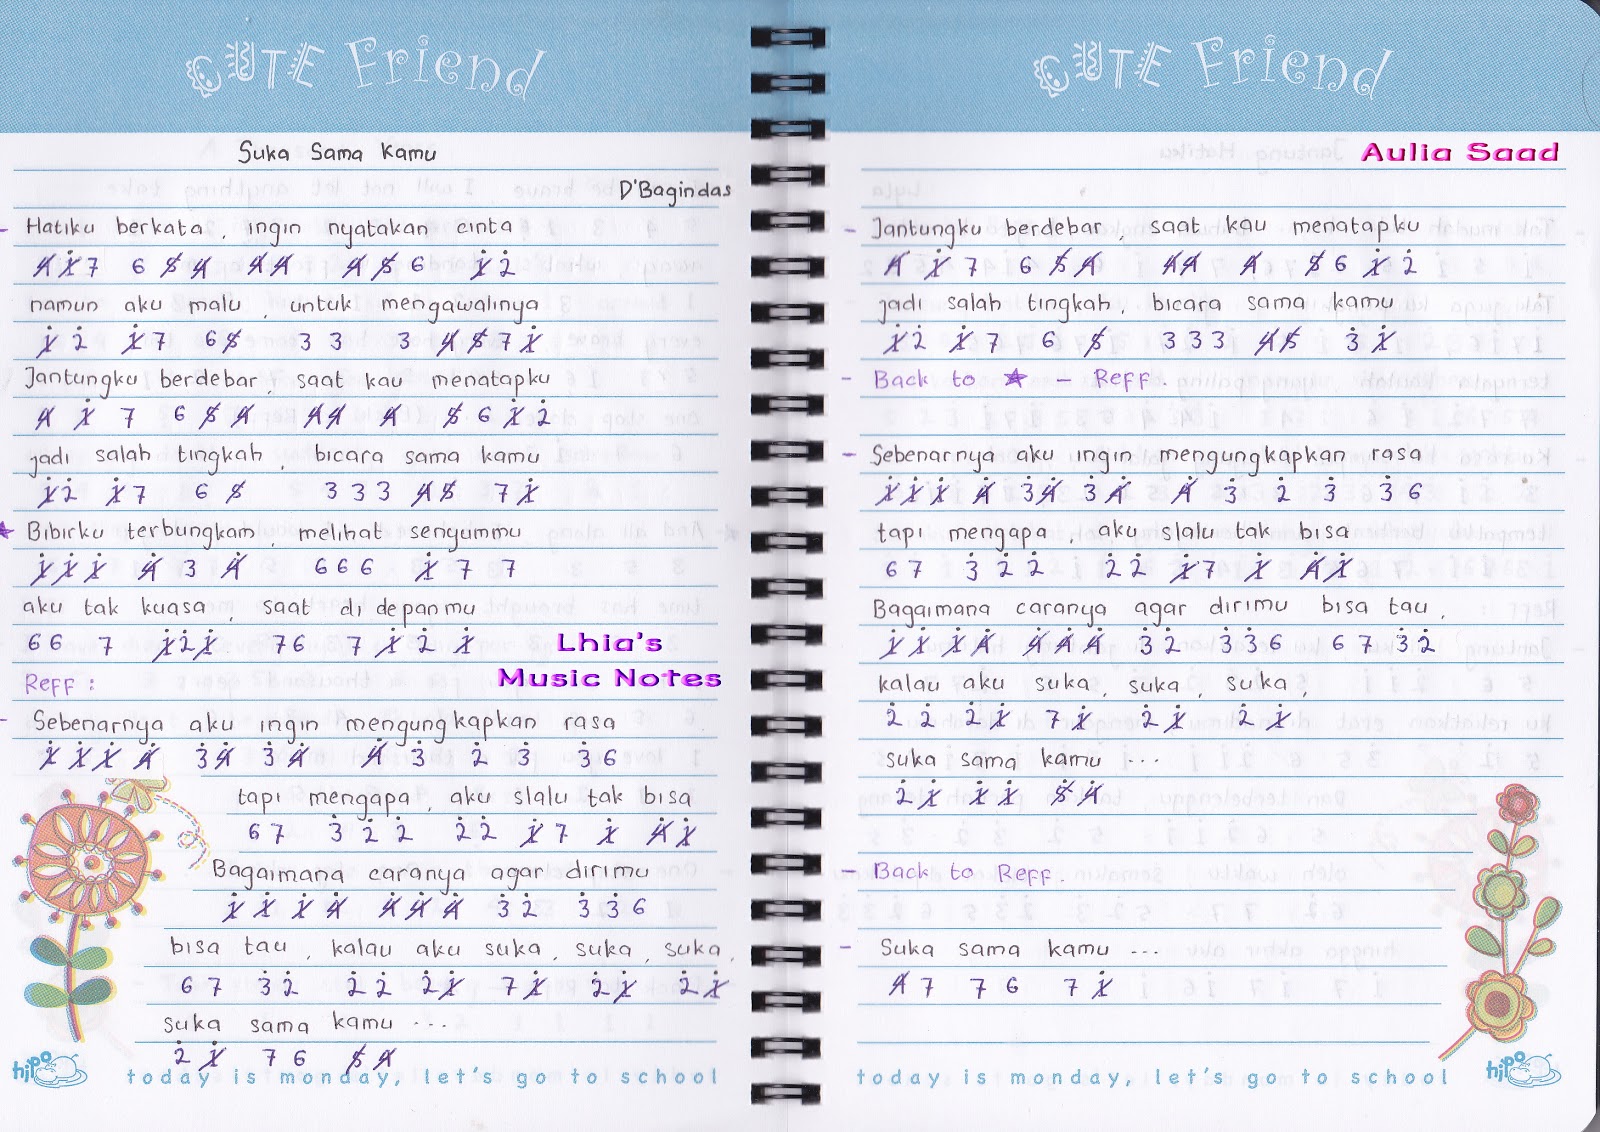 CUTE Friend
Suka Sama Kamu
D'Bagindas
- Hatiku berkata, ingin nyatakan cinta
4̸ 1̸̇ 7 6 5̸ 4̸ 4̸ 4̸ 4̸ 5̸ 6 1̸̇ 2̇
namun aku malu, untuk mengawalinya
1̸̇ 2̇ 1̸̇ 7 6 5̸ 3 3 3 4̸ 5̸ 7 1̸̇
Jantungku berdebar, saat kau menatapku
4̸ 1̸̇ 7 6 5̸ 4̸ 4̸ 4̸ 4̸ 5̸ 6 1̸̇ 2̇
jadi salah tingkah, bicara sama kamu
1̸̇ 2̇ 1̸̇ 7 6 5̸ 3 3 3 4̸ 5̸ 7 1̸̇
★ Bibirku terbungkam, melihat senyummu
1̸̇ 1̸̇ 1̸̇ 4̸̇ 3 4̸̇ 6 6 6 1̸̇ 7 7
aku tak kuasa, saat di depanmu
6 6 7 1̸̇ 2̇ 1̸̇ 7 6 7 1̸̇ 2̇ 1̸̇
Lhia's
Music Notes
Reff :
- Sebenarnya aku ingin mengungkapkan rasa
1̸̇ 1̸̇ 1̸̇ 4̸̇ 3̇ 4̸̇ 3̇ 4̸̇ 4̸̇ 3̇ 2̇ 3̇ 3̇ 6
tapi mengapa, aku slalu tak bisa
6 7 3̇ 2̇ 2̇ 2̇ 2̇ 1̸̇ 7 1̸̇ 4̸̇ 1̸̇
Bagaimana caranya agar dirimu
1̸̇ 1̸̇ 1̸̇ 4̸̇ 4̸̇ 4̸̇ 4̸̇ 3̇ 2̇ 3̇ 3̇ 6
bisa tau, kalau aku suka, suka, suka,
6 7 3̇ 2̇ 2̇ 2̇ 2̇ 1̸̇ 7 1̸̇ 2̇ 1̸̇ 2̇ 1̸̇
suka sama kamu ...
2̇ 1̸̇ 7 6 5̸ 4̸
hipo
today is monday, let's go to school
CUTE Friend
Aulia Saad
- Jantungku berdebar, saat kau menatapku
4̸ 1̸̇ 7 6 5̸ 4̸ 4̸ 4̸ 4̸ 5̸ 6 1̸̇ 2̇
jadi salah tingkah, bicara sama kamu
1̸̇ 2̇ 1̸̇ 7 6 5̸ 3 3 3 4̸ 5̸ 3̇ 1̸̇
- Back to ★ - Reff.
- Sebenarnya aku ingin mengungkapkan rasa
1̸̇ 1̸̇ 1̸̇ 4̸̇ 3̇ 4̸̇ 3̇ 4̸̇ 4̸̇ 3̇ 2̇ 3̇ 3̇ 6
tapi mengapa, aku slalu tak bisa
6 7 3̇ 2̇ 2̇ 2̇ 2̇ 1̸̇ 7 1̸̇ 4̸̇ 1̸̇
Bagaimana caranya agar dirimu bisa tau,
1̸̇ 1̸̇ 1̸̇ 4̸̇ 4̸̇ 4̸̇ 4̸̇ 3̇ 2̇ 3̇ 3̇ 6 6 7 3̇ 2̇
kalau aku suka, suka, suka,
2̇ 2̇ 2̇ 1̸̇ 7 1̸̇ 2̇ 1̸̇ 2̇ 1̸̇
suka sama kamu ...
2̇ 1̸̇ 1̸̇ 1̸̇ 5̸̇ 4̸̇
- Back to Reff.
- Suka sama kamu ...
4̸ 7 7 6 7 1̸̇
today is monday, let's go to school
hipo